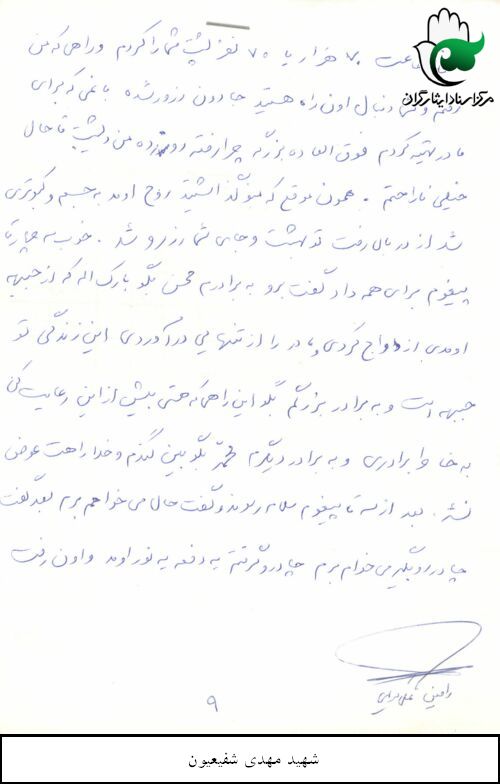 مرکز اسناد ایثارگران
۷۰ هزار یا ۷۰ نفر پشت شما را کردم و راهی که من
رفتم و شما دنبال اون راه هستید جادون رزور شده با غمی که برای
مادر تهیه کردم فوق العاده بزرگه چرا رفته دو زده من و پشت تا حال
خیلی ناراحتم . همون موقع که منو گذاشتید روح اومد به جسم و کبوتری
شد از در بال رفت تو بهشت و جای شما رزرو شد . خوب به چهار تا
پیغوم برای همه داد گفت برو به برادرم محسن بگو بارک اله که از جبهه
اومدی ازدواج کردی و مادر را از تنهایی در آوردی این زندگی تو
جبهه است و به برادر بزرگم بگو این راهی که حتی بیش از این رعایت کن
به خدا برادری و به برادر دیگرم محمد بگو ببین گنزم و خدا راهت عوض
نشه . بعد از سه تا پیغوم سلام رسوند و گفت حال می خواهم برم بعد گفت
چادر رو بگیر می خوام برم چادر و گرفتم یه دفعه یه نور اومد و اون رفت
۹
شهید مهدی شفیعیون